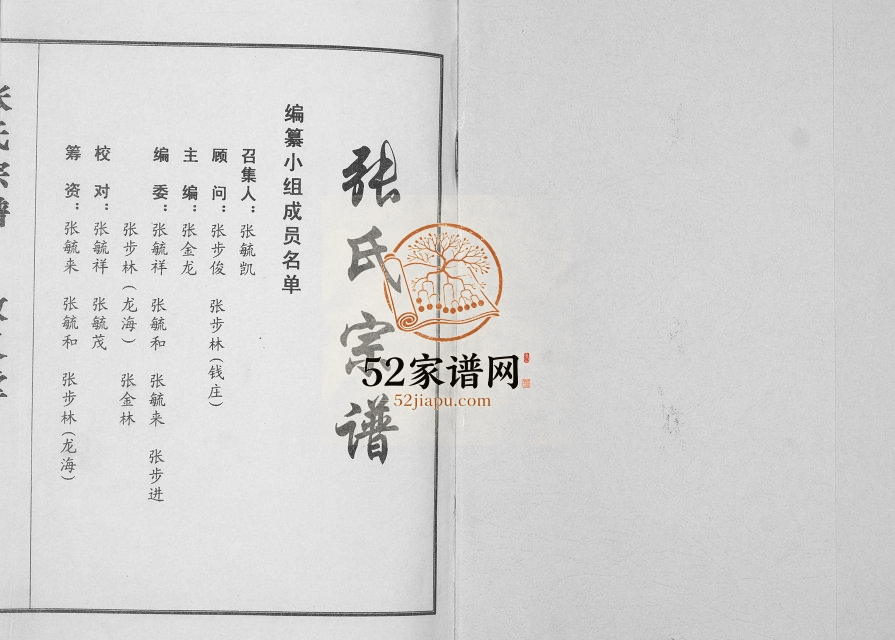 张氏宗谱
编纂小组成员名单
召集人：张毓凯
顾问：张步俊 张步林（钱庄）
主编：张金龙
编委：张毓祥 张毓和 张毓来 张步进
张步林（龙海） 张金林
校对：张毓祥 张毓茂
筹资：张毓来 张毓和 张步林（龙海）
张氏宗谱
52家谱网
52jiapu.com